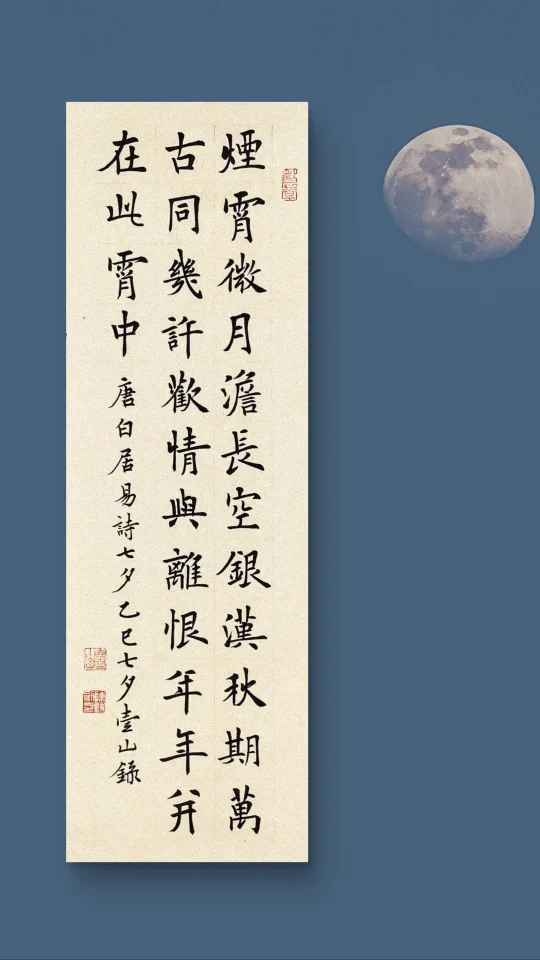 煙霄微月澹長空銀漢秋期萬
古同幾許歡情與離恨年年并
在此霄中
唐白居易詩七夕乙巳七夕壹山錄